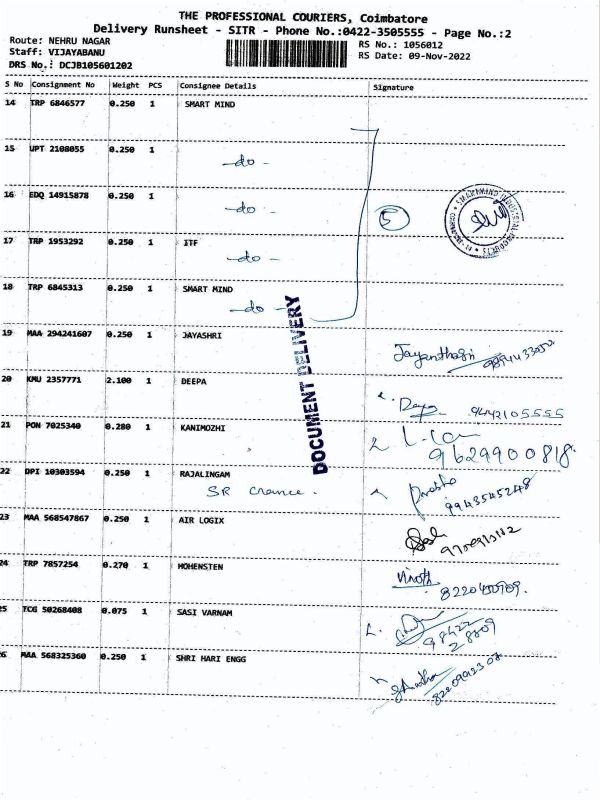 THE PROFESSIONAL COURIERS, Coimbatore
Delivery Runsheet - SITR - Phone No.:0422-3505555 - Page No.:2
Route: NEHRU NAGAR
Staff: VIJAYABANU
DRS No.: DCJB105601202
RS No.: 1056012
RS Date: 09-Nov-2022
S No Consignment No Weight PCS Consignee Details Signature
14 TRP 6846577 0.250 1 SMART MIND
15 UPT 2108055 0.250 1
-do-
16 EDQ 14915878 0.250 1
-do-
5
17 TRP 1953292 0.250 1 ITF
-do-
18 TRP 6845313 0.250 1 SMART MIND
-do-
DOCUMENT DELIVERY
19 MAA 294241607 0.250 1 JAYASHRI
20 KMU 2357771 2.100 1 DEEPA
9442105555
21 PON 7025340 0.280 1 KANIMOZHI
9629900818
22 DPI 10303594 0.250 1 RAJALINGAM
SR Crance.
9943545248
23 MAA 568547867 0.250 1 AIR LOGIX
24 TRP 7857254 0.270 1 HOHENSTEN
Vinoth
25 TCG 50268408 0.075 1 SASI VARNAM
98422
28809
26 MAA 568325360 0.250 1 SHRI HARI ENGG